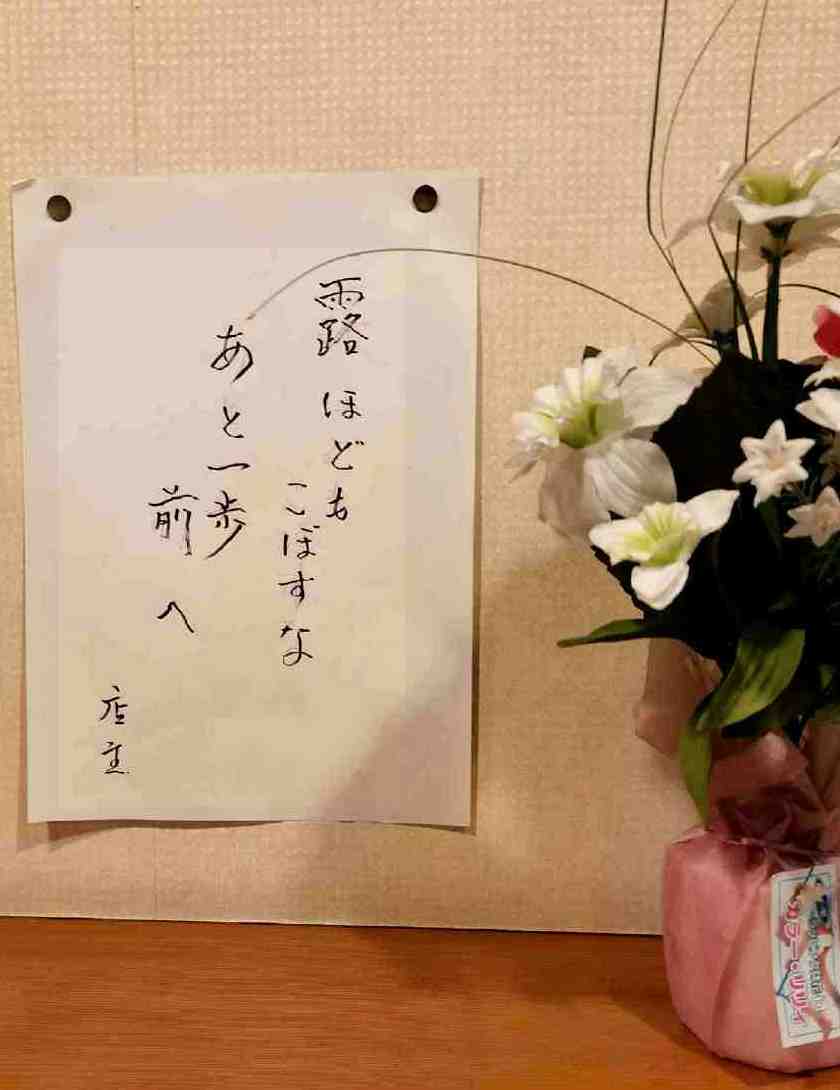 露ほども
こぼすな
あと一歩
前へ
店主
カラー・リリィ